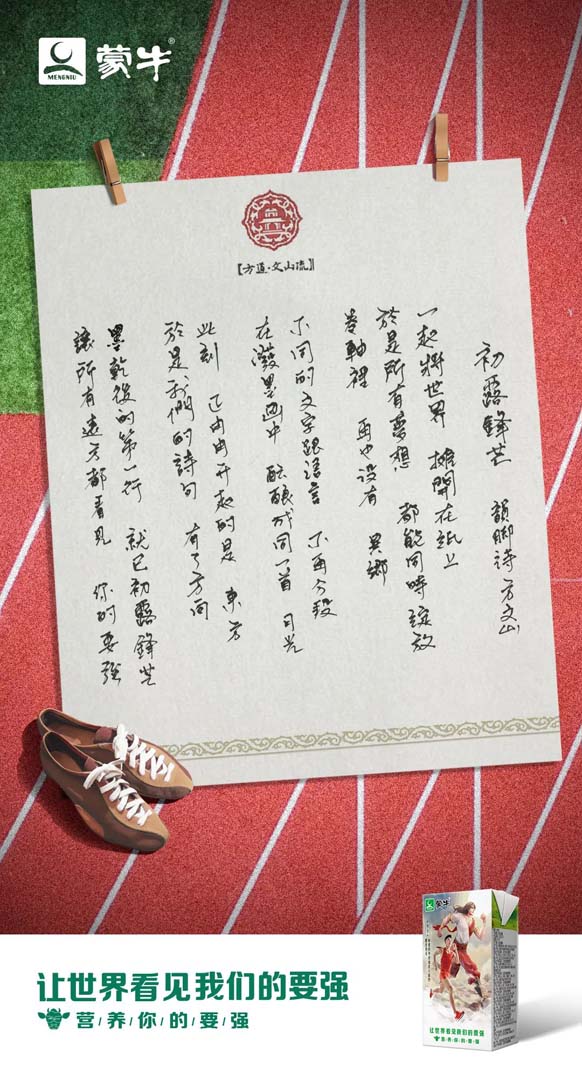 MENGNIU
蒙牛®
【方道·文山流】
初露鋒芒 韻腳詩 方文山
一起將世界 攤開在紙上
於是所有夢想 都能同時綻放
卷軸裡 再也沒有 異鄉
不同的文字跟語言 不再分段
在潑墨畫中 醞釀成同一首 月光
此刻 正冉冉升起的是 東方
於是我們的詩句 有了方向
墨乾後的第一行 就已初露鋒芒
讓所有遠方都看見 你的要強
蒙牛
让世界看见我们的要强
营/养/你/的/要/强
让世界看见我们的要强
营/养/你/的/要/强